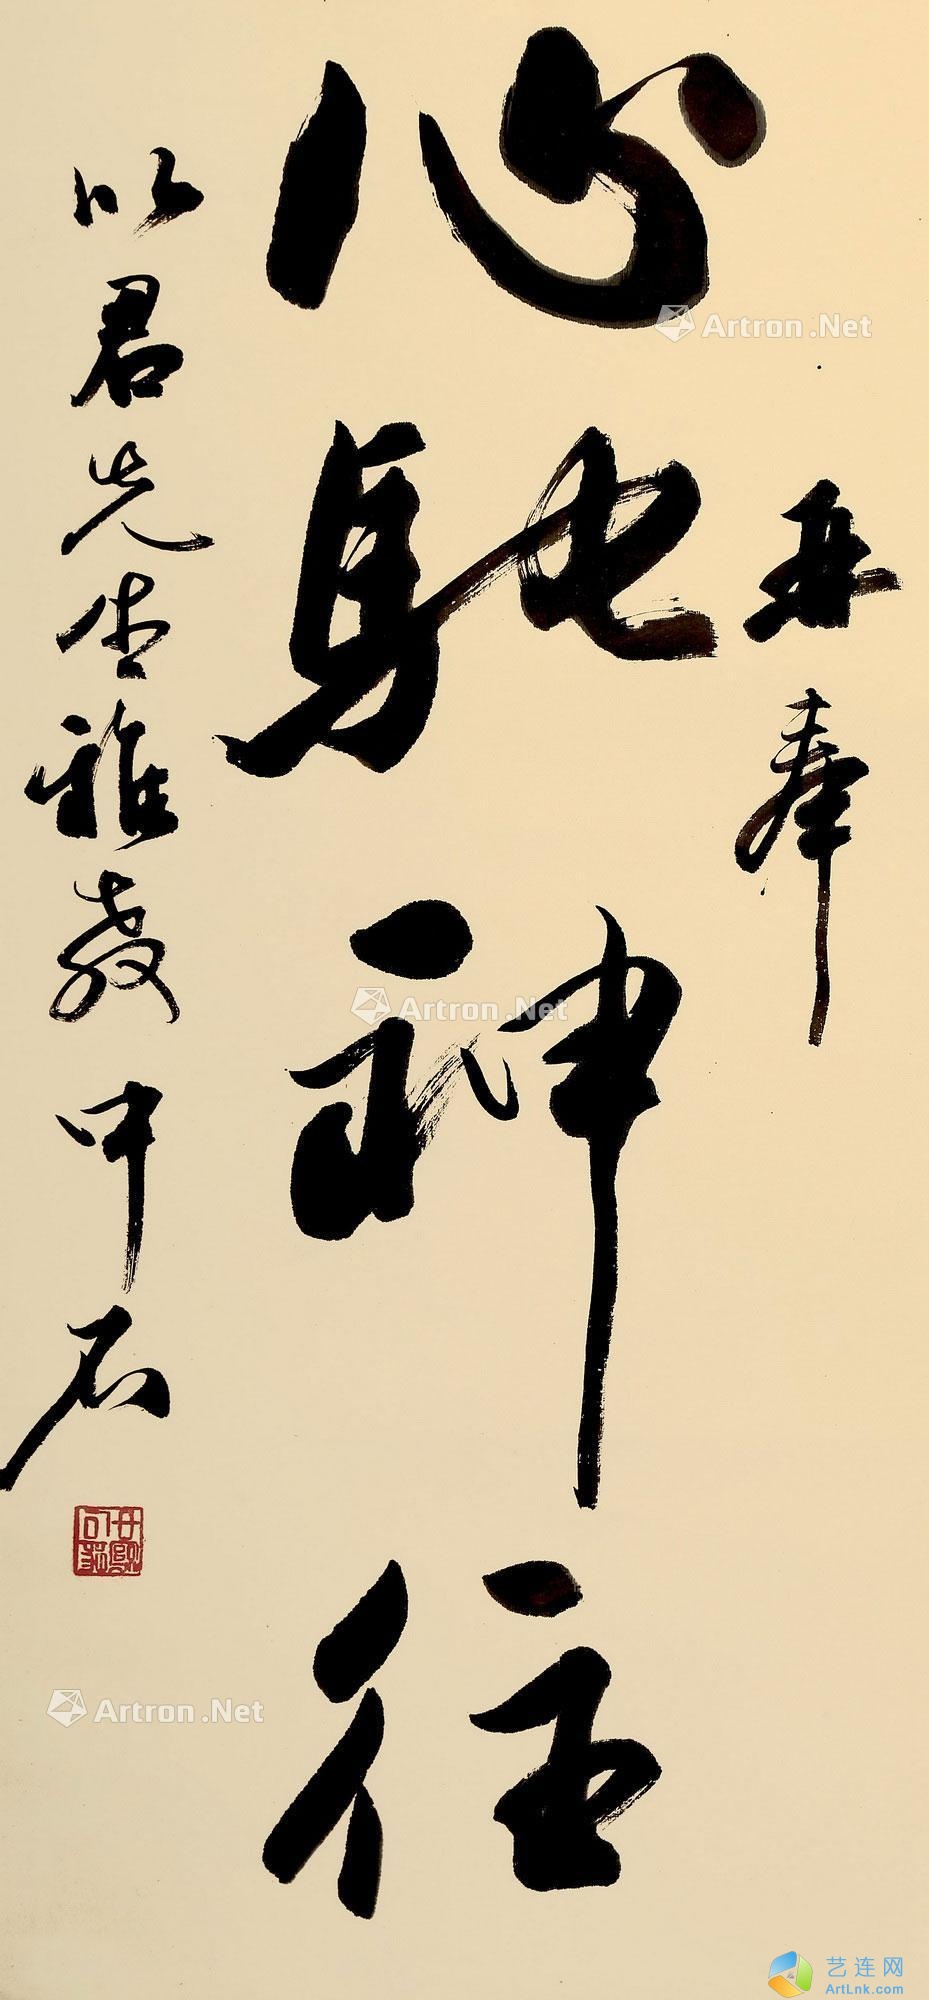 再奉
心馳神往
以君先生雅教 中石
Artron.Net
Artron.Net
Artron.Net
艺连网
ArtLnk.com